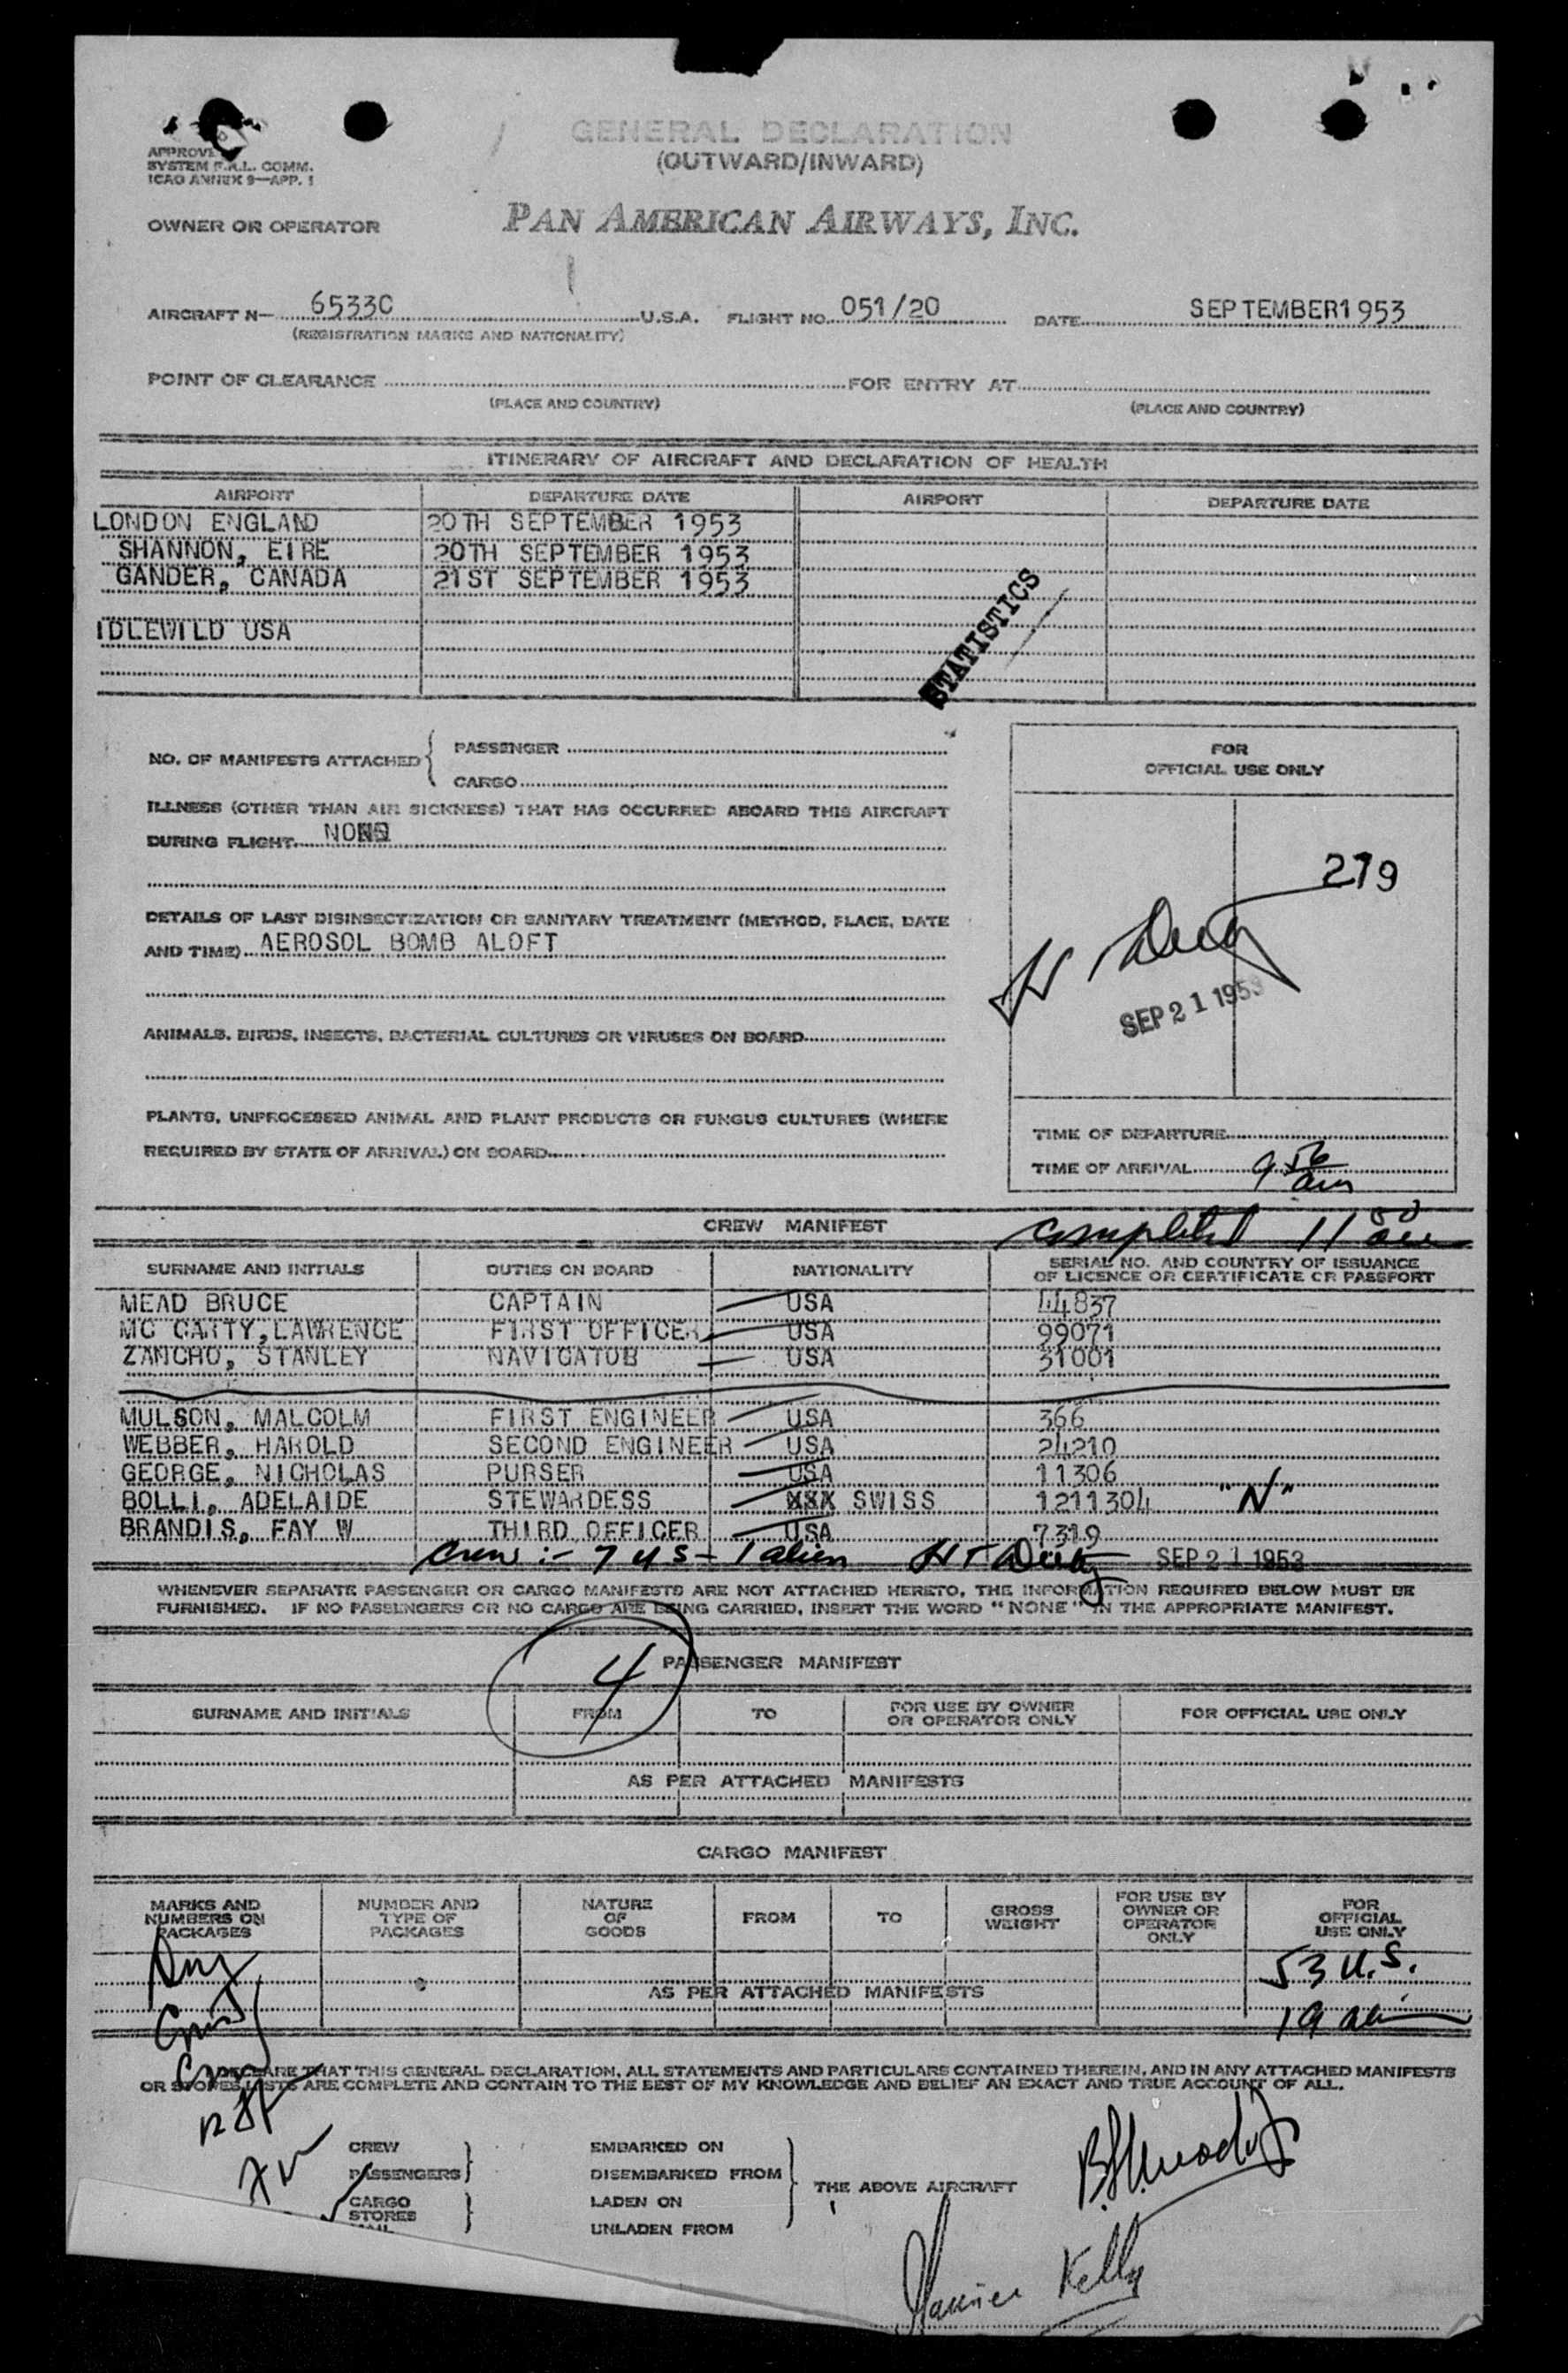 GENERAL DECLARATION
(OUTWARD/INWARD)
SYSTEM F.A.L. COMM.
ICAO ANNEX 9—APP. 1
OWNER OR OPERATOR PAN AMERICAN AIRWAYS, INC.
AIRCRAFT N— 6533C U.S.A. FLIGHT NO. 051/20 DATE SEPTEMBER1953
(REGISTRATION MARKS AND NATIONALITY)
POINT OF CLEARANCE FOR ENTRY AT
(PLACE AND COUNTRY) (PLACE AND COUNTRY)
ITINERARY OF AIRCRAFT AND DECLARATION OF HEALTH
AIRPORT DEPARTURE DATE AIRPORT DEPARTURE DATE
LONDON ENGLAND 20TH SEPTEMBER 1953
SHANNON, EIRE 20TH SEPTEMBER 1953
GANDER, CANADA 21ST SEPTEMBER 1953
IDLEWILD USA
STATISTICS
NO. OF MANIFESTS ATTACHED { PASSENGER
CARGO
ILLNESS (OTHER THAN AIR SICKNESS) THAT HAS OCCURRED ABOARD THIS AIRCRAFT
DURING FLIGHT NONE
DETAILS OF LAST DISINSECTIZATION OR SANITARY TREATMENT (METHOD, PLACE, DATE
AND TIME) AEROSOL BOMB ALOFT
ANIMALS, BIRDS, INSECTS, BACTERIAL CULTURES OR VIRUSES ON BOARD
PLANTS, UNPROCESSED ANIMAL AND PLANT PRODUCTS OR FUNGUS CULTURES (WHERE
REQUIRED BY STATE OF ARRIVAL) ON BOARD
FOR
OFFICIAL USE ONLY
279
SEP 21 1953
TIME OF DEPARTURE
TIME OF ARRIVAL 9 56 am
CREW MANIFEST
completed 11
SURNAME AND INITIALS DUTIES ON BOARD NATIONALITY SERIAL NO. AND COUNTRY OF ISSUANCE
OF LICENCE OR CERTIFICATE OR PASSPORT
MEAD BRUCE CAPTAIN USA 44837
MC CARTY,LAWRENCE FIRST OFFICER USA 99071
ZANCHO, STANLEY NAVIGATOR USA 31001
MULSON, MALCOLM FIRST ENGINEER USA 366
WEBBER, HAROLD SECOND ENGINEER USA 24210
GEORGE, NICHOLAS PURSER USA 11306
BOLLI, ADELAIDE STEWARDESS XXX SWISS 1211304 "N"
BRANDIS, FAY W THIRD OFFICER USA 7319
Crew :- 7 US - 1 alien SEP 21 1953
WHENEVER SEPARATE PASSENGER OR CARGO MANIFESTS ARE NOT ATTACHED HERETO, THE INFORMATION REQUIRED BELOW MUST BE
FURNISHED. IF NO PASSENGERS OR NO CARGO ARE BEING CARRIED, INSERT THE WORD "NONE" IN THE APPROPRIATE MANIFEST.
4
PASSENGER MANIFEST
SURNAME AND INITIALS FROM TO FOR USE BY OWNER
OR OPERATOR ONLY FOR OFFICIAL USE ONLY
AS PER ATTACHED MANIFESTS
CARGO MANIFEST
MARKS AND
NUMBERS ON
PACKAGES
NUMBER AND
TYPE OF
PACKAGES
NATURE
OF
GOODS
FROM
TO
GROSS
WEIGHT
FOR USE BY
OWNER OR
OPERATOR
ONLY
FOR
OFFICIAL
USE ONLY
53 U.S.
AS PER ATTACHED MANIFESTS
19
THAT THIS GENERAL DECLARATION, ALL STATEMENTS AND PARTICULARS CONTAINED THEREIN, AND IN ANY ATTACHED MANIFESTS
OR STORES LISTS ARE COMPLETE AND CONTAIN TO THE BEST OF MY KNOWLEDGE AND BELIEF AN EXACT AND TRUE ACCOUNT OF ALL.
CREW EMBARKED ON
PASSENGERS DISEMBARKED FROM
THE ABOVE AIRCRAFT
CARGO LADEN ON
STORES
UNLADEN FROM
Kelly